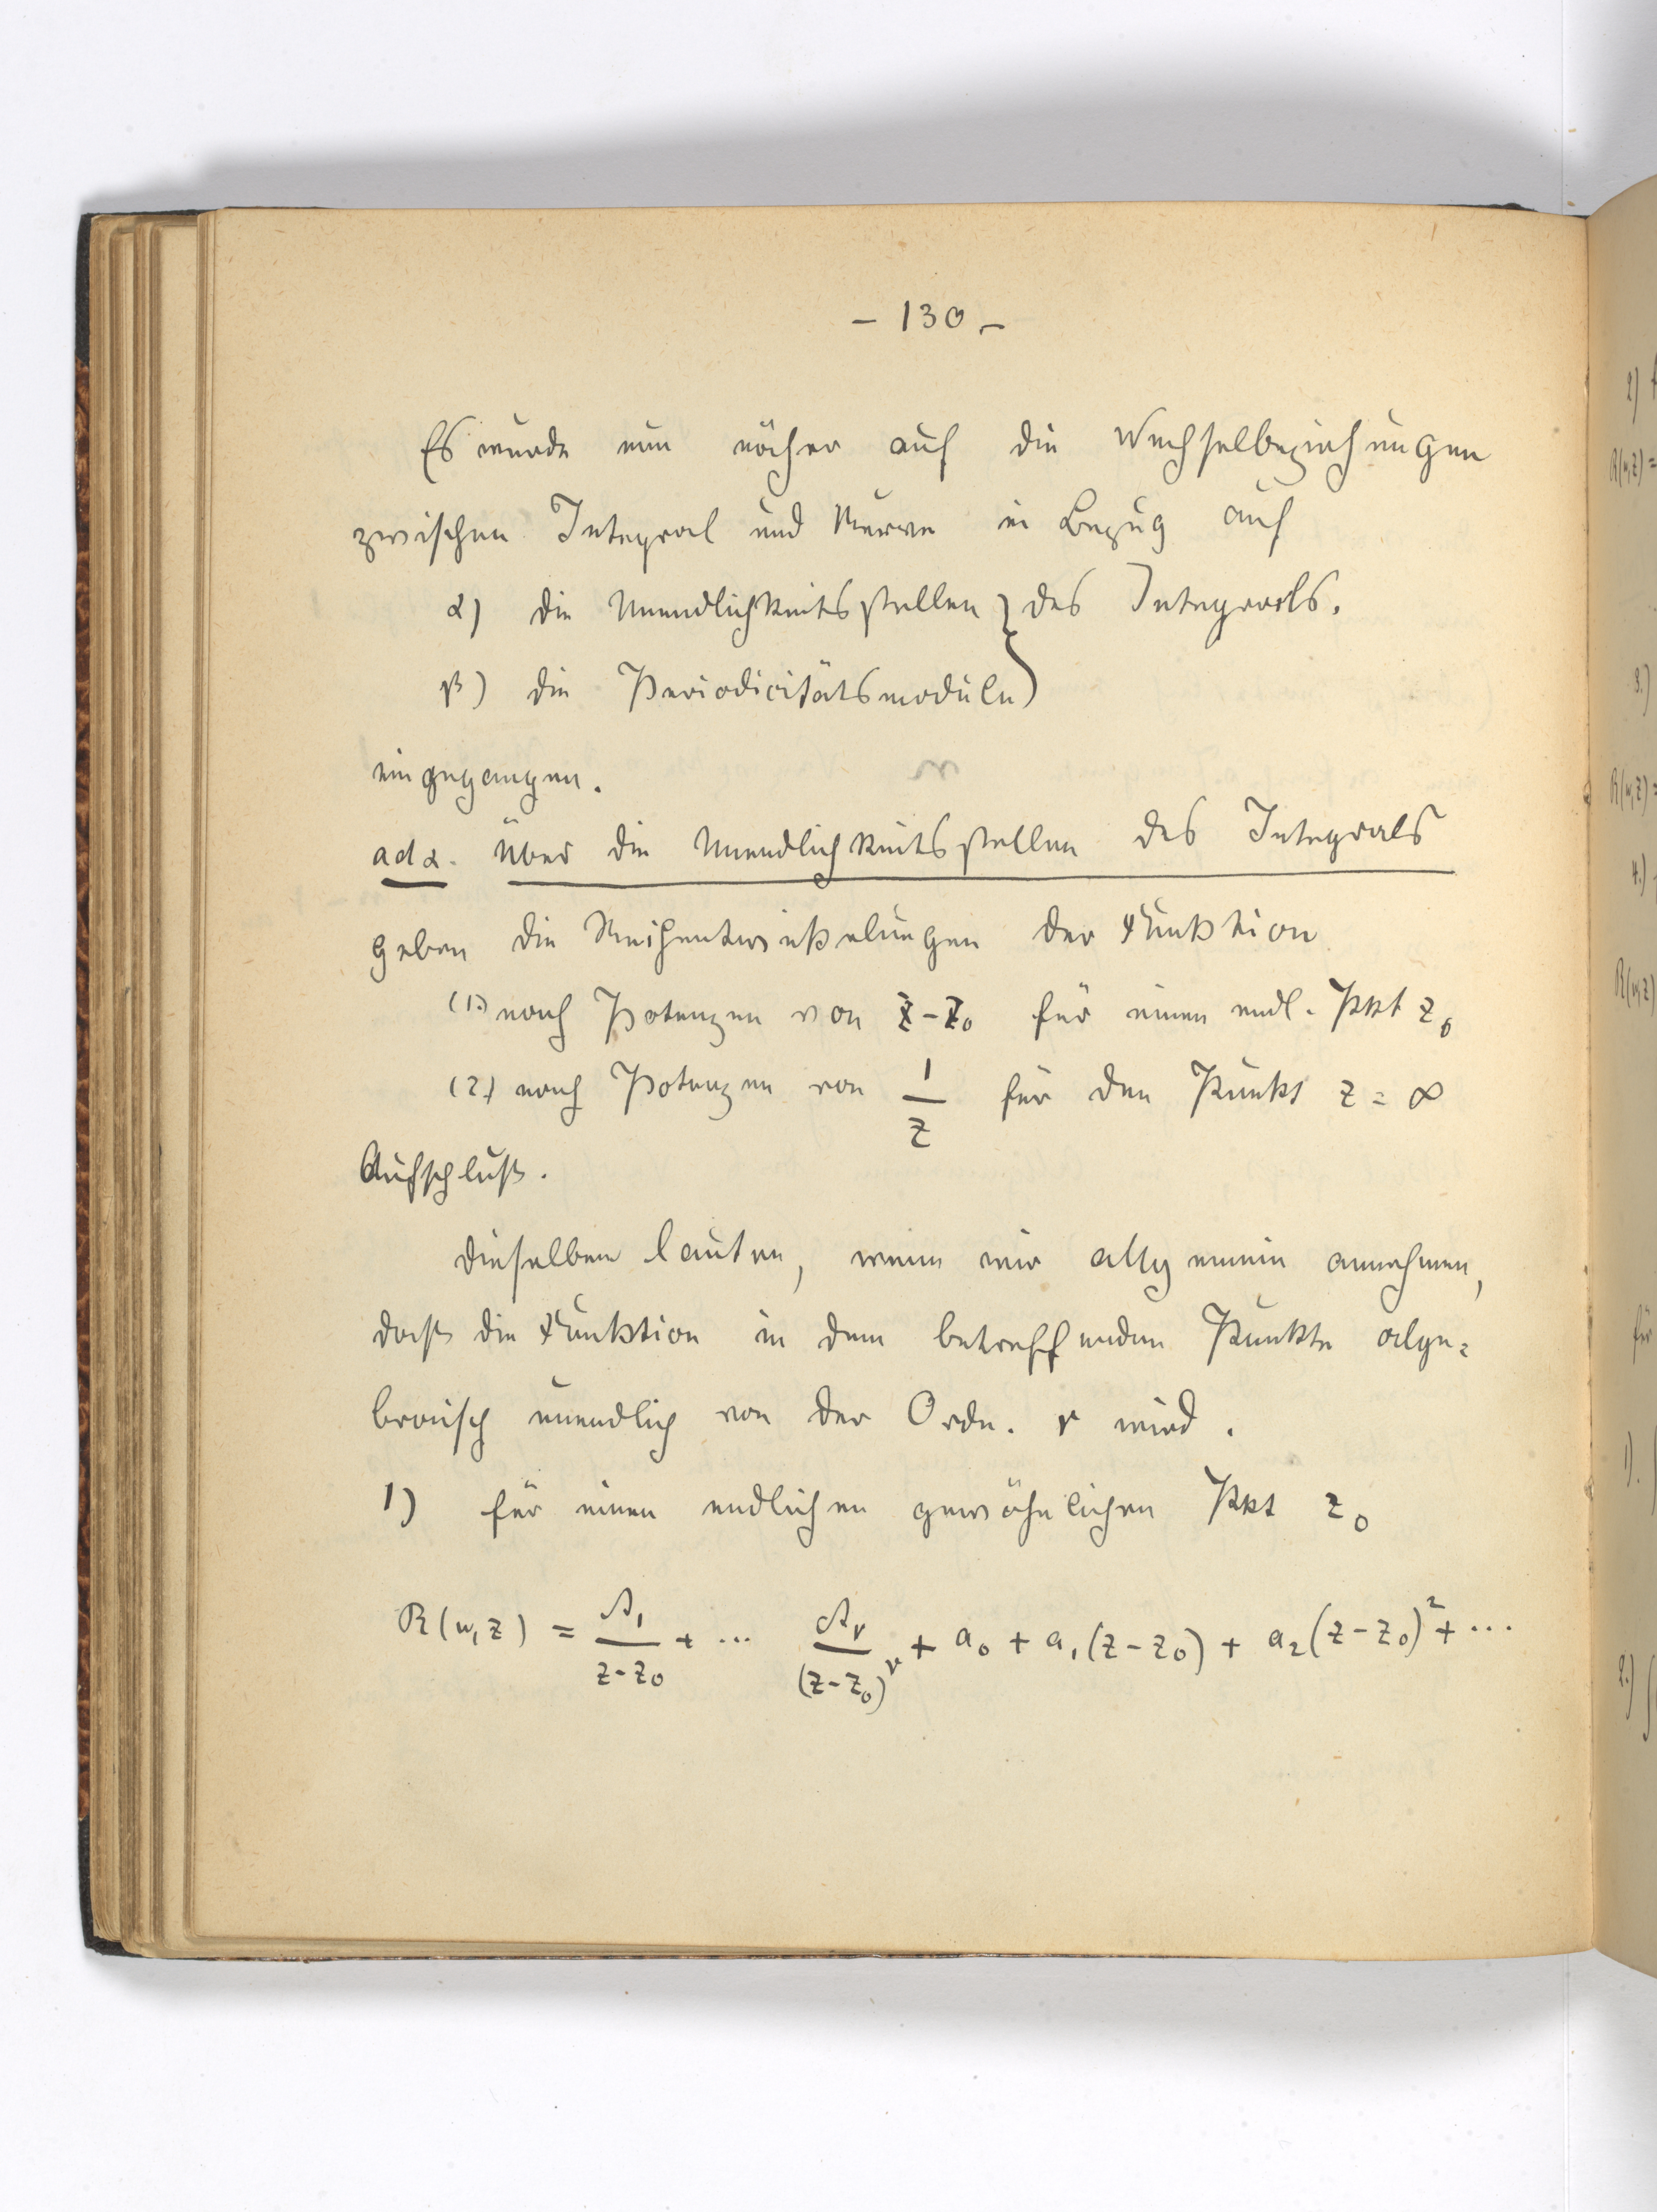 – 130 –
Es wurde nun näher auf die Wechselbeziehungen
zwischen Integral und Kurve in Bezug auf
α) die Unendlichkeitsstellen } des Integrals.
β) die Periodicitätsmoduln }
eingegangen.
ad α. Über die Unendlichkeitsstellen des Integrals
geben die Reihentwickelungen der Funktion
(1.) nach Potenzen von z - z₀ für einen endl. Pkt z₀
(2.) nach Potenzen von 1/z für den Punkt z = ∞
Aufschluß.
Dieselben lauten, wenn wir allgemein annehmen,
daß die Funktion in dem betreffenden Punkte alge=
braisch unendlich von der Ordn. ν wird.
1) für einen endlichen gewöhnlichen Pkt z₀
R(w, z) = A₁/(z - z₀) + ... Aν/(z - z₀)^ν + a₀ + a₁(z - z₀) + a₂(z - z₀)² + ...